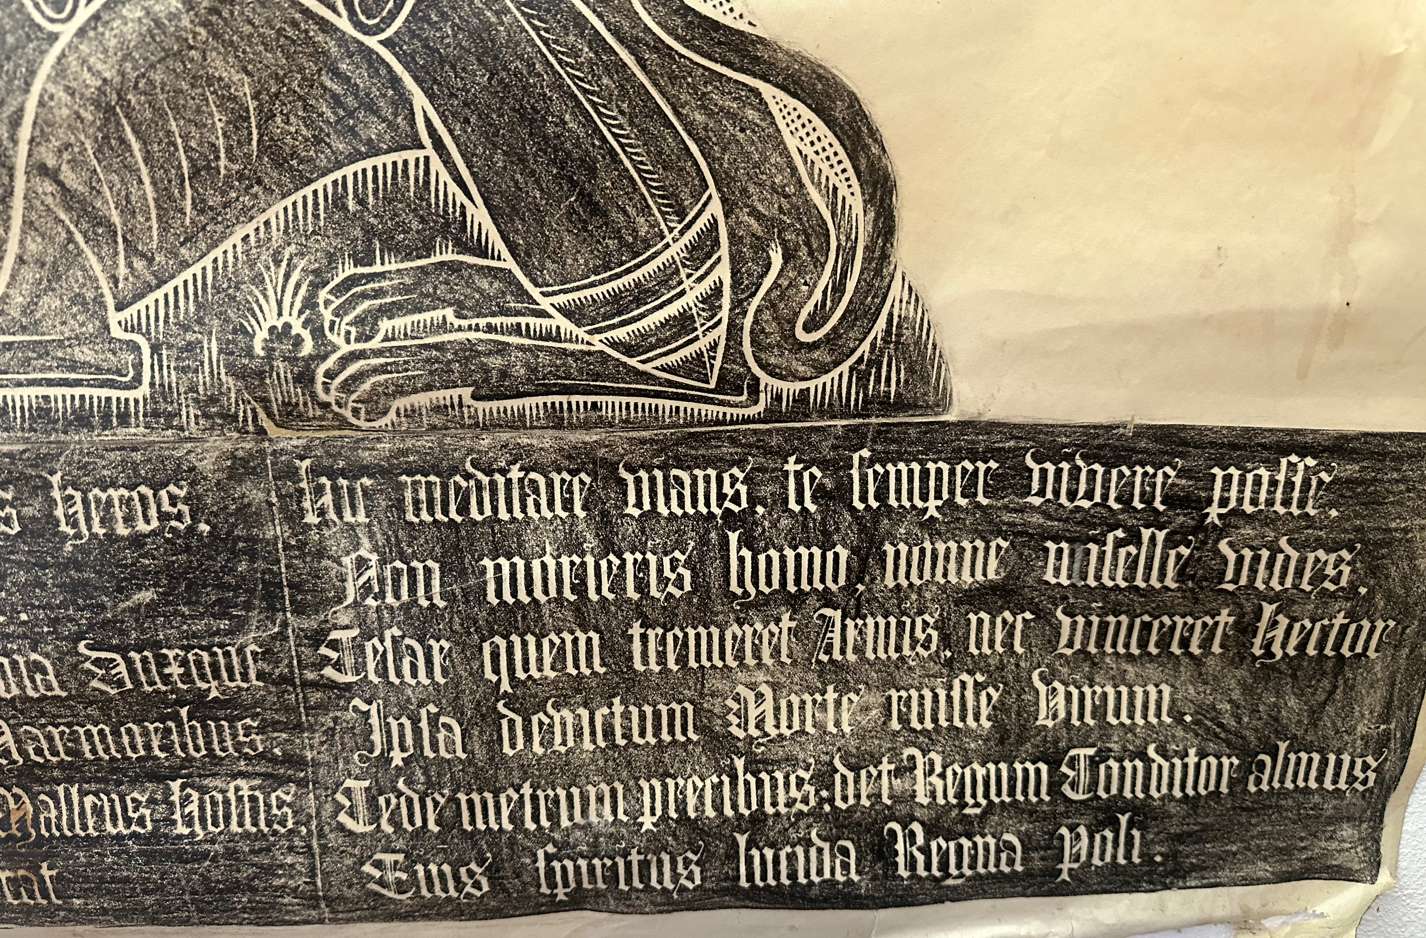 heros.
Duxque
Marmoribus.
Malleus Hostis.
Hic meditare vians, te semper vivere posse.
Non morieris homo, nonne miselle vides.
Cesar quem tremeret Armis, nec vinceret Hector
Ipsa devictum Morte ruisse Virum.
Cede metrum precibus: det Regum Conditor almus
Eius spiritus lucida Regna poli.